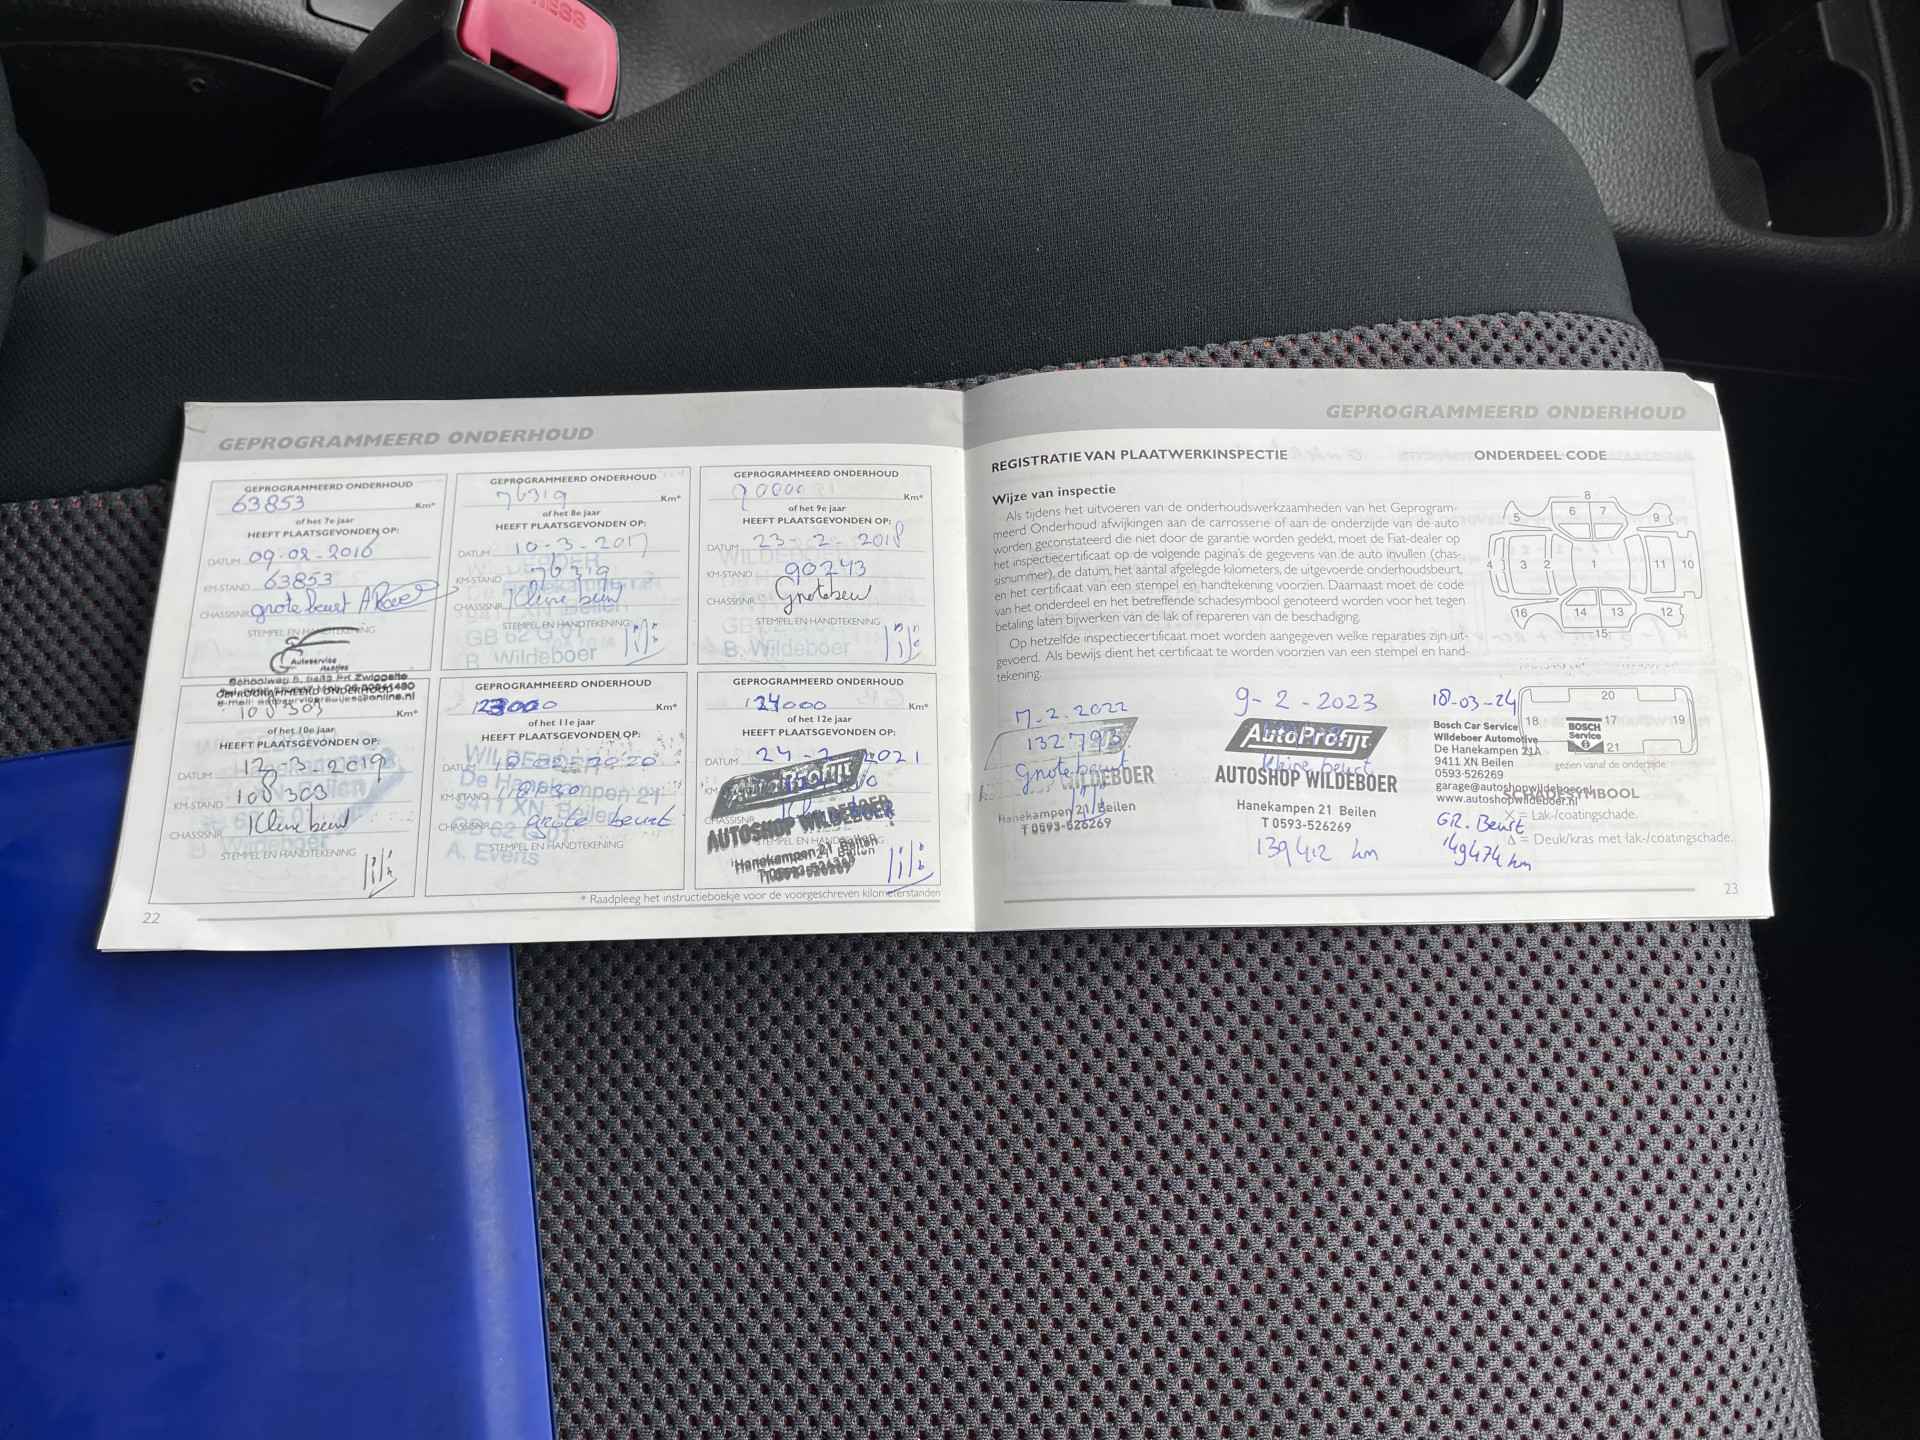 GEPROGRAMMEERD ONDERHOUD
GEPROGRAMMEERD ONDERHOUD
63853 Km*
of het 7e jaar
HEEFT PLAATSGEVONDEN OP:
DATUM 09-02-2016
KM-STAND 63853
CHASSISNR. grote beurt
STEMPEL EN HANDTEKENING
Autoservice
GEPROGRAMMEERD ONDERHOUD
76319 Km*
of het 8e jaar
HEEFT PLAATSGEVONDEN OP:
DATUM 10-3-2017
KM-STAND 76319
CHASSISNR. Kleine beurt
STEMPEL EN HANDTEKENING
B. Wildeboer
GEPROGRAMMEERD ONDERHOUD
Km*
of het 9e jaar
HEEFT PLAATSGEVONDEN OP:
DATUM 23-2-2018
KM-STAND 90243
CHASSISNR. Grote beurt
STEMPEL EN HANDTEKENING
B. Wildeboer
GEPROGRAMMEERD ONDERHOUD
108303 Km*
of het 10e jaar
HEEFT PLAATSGEVONDEN OP:
DATUM 12-3-2019
KM-STAND 108303
CHASSISNR. Kleine beurt
STEMPEL EN HANDTEKENING
B. Wildeboer
GEPROGRAMMEERD ONDERHOUD
Km*
of het 11e jaar
HEEFT PLAATSGEVONDEN OP:
DATUM 2020
KM-STAND
CHASSISNR. grote beurt
STEMPEL EN HANDTEKENING
A. Evens
GEPROGRAMMEERD ONDERHOUD
124000 Km*
of het 12e jaar
HEEFT PLAATSGEVONDEN OP:
DATUM 24-2-2021
AutoProfijt
AUTOSHOP WILDEBOER
Hanekampen 21 Beilen
T 0593-526269
* Raadpleeg het instructieboekje voor de voorgeschreven kilometerstanden
22
GEPROGRAMMEERD ONDERHOUD
REGISTRATIE VAN PLAATWERKINSPECTIE
Wijze van inspectie
Als tijdens het uitvoeren van de onderhoudswerkzaamheden van het Geprogram-
meerd Onderhoud afwijkingen aan de carrosserie of aan de onderzijde van de auto
worden geconstateerd die niet door de garantie worden gedekt, moet de Fiat-dealer op
het inspectiecertificaat op de volgende pagina's de gegevens van de auto invullen (chas-
sisnummer), de datum, het aantal afgelegde kilometers, de uitgevoerde onderhoudsbeurt,
en het certificaat van een stempel en handtekening voorzien. Daarnaast moet de code
van het onderdeel en het betreffende schadesymbool genoteerd worden voor het tegen
betaling laten bijwerken van de lak of repareren van de beschadiging.
Op hetzelfde inspectiecertificaat moet worden aangegeven welke reparaties zijn uit-
gevoerd. Als bewijs dient het certificaat te worden voorzien van een stempel en hand-
tekening.
ONDERDEEL CODE
8
5 6 7 9
4 3 2 1 11 10
16 14 13 12
15
20
18 17 19
21
gezien vanaf de onderzijde
SCHADESYMBOOL
X = Lak-/coatingschade.
Δ = Deuk/kras met lak-/coatingschade.
17-2-2022
132793
Grote beurt
WILDEBOER
Hanekampen 21 Beilen
T 0593-526269
9-2-2023
AutoProfijt
Kleine beurt
AUTOSHOP WILDEBOER
Hanekampen 21 Beilen
T 0593-526269
139412 km
18-03-24
Bosch Car Service
Wildeboer Automotive
De Hanekampen 21A
9411 XN Beilen
0593-526269
garage@autoshopwildeboer.nl
www.autoshopwildeboer.nl
BOSCH
Service
GR. Beurt
149474 km
23